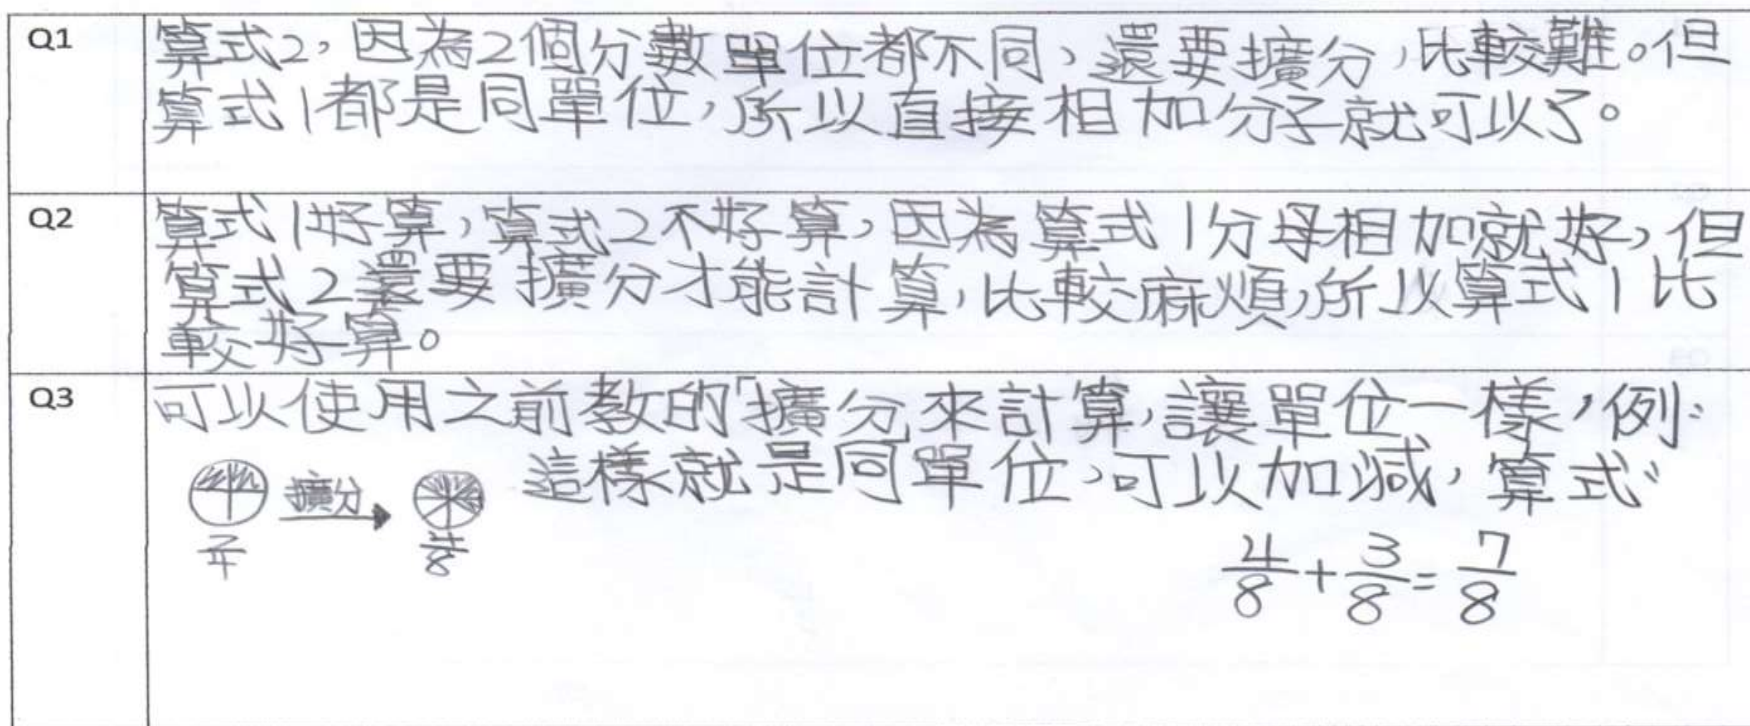 Q1
算式2，因為2個分數單位都不同，還要擴分，比較難。但
算式1都是同單位，所以直接相加分子就可以了。
Q2
算式1好算，算式2不好算，因為算式1分母相加就好，但
算式2還要擴分才能計算，比較麻煩，所以算式1比
較好算。
Q3
可以使用之前教的「擴分」來計算，讓單位一樣，例：
擴分 這樣就是同單位，可以加減，算式：
2/4 4/8 4/8+3/8=7/8